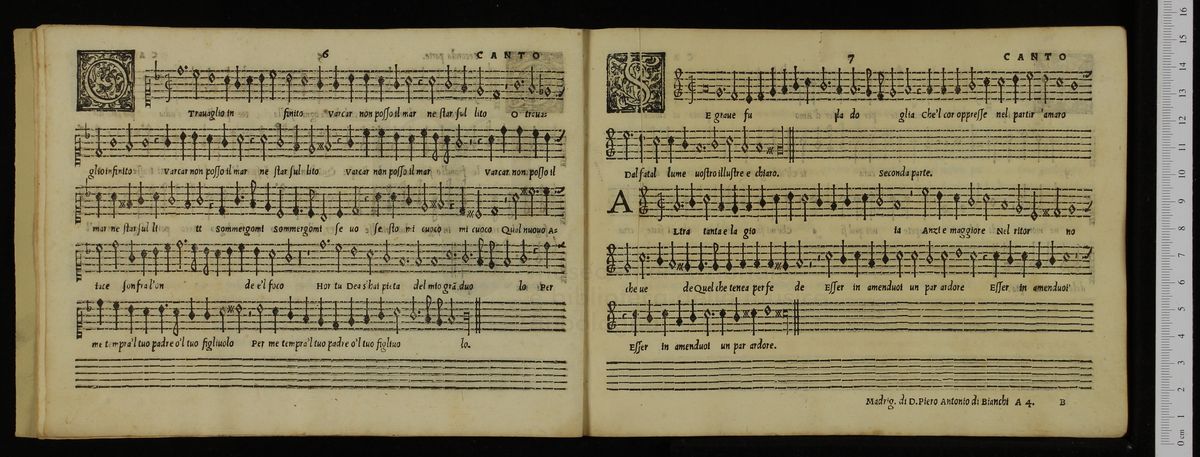 6
CANTO
O
Trauaglio in finito Varcar non posso il mar ne star sul lito O traua:
glio infinito Varcar non posso il mar ne star sul lito Varcar non posso il mar Varcar non posso il
mar ne star sul li to Sommergomi Sommergomi se uo e se sto mi cuoco mi cuoco Qual nuouo A-
iace son fra l'on de e'l foco Hor tu Dea s'hai pieta del mio grã duo lo Per
me tempra'l tuo padre o'l tuo figliuolo Per me tempra'l tuo padre o'l tuo figliuo lo.
7
CANTO
S
E graue fu la do glia Che'l cor oppresse nel partir amaro
Dal fatal lume uostro illustre e chiaro.
Seconda parte.
A
Ltra tanta e la gio ia Anzi e maggiore Nel ritor no
che ue de Quel che tenea per fe de Esser in amenduoi un par ardore Esser in amenduoi
Esser in amenduoi un par ardore.
Madrig. di D. Piero Antonio di Bianchi A 4. B
0 cm 1 2 3 4 5 6 7 8 9 10 11 12 13 14 15 16